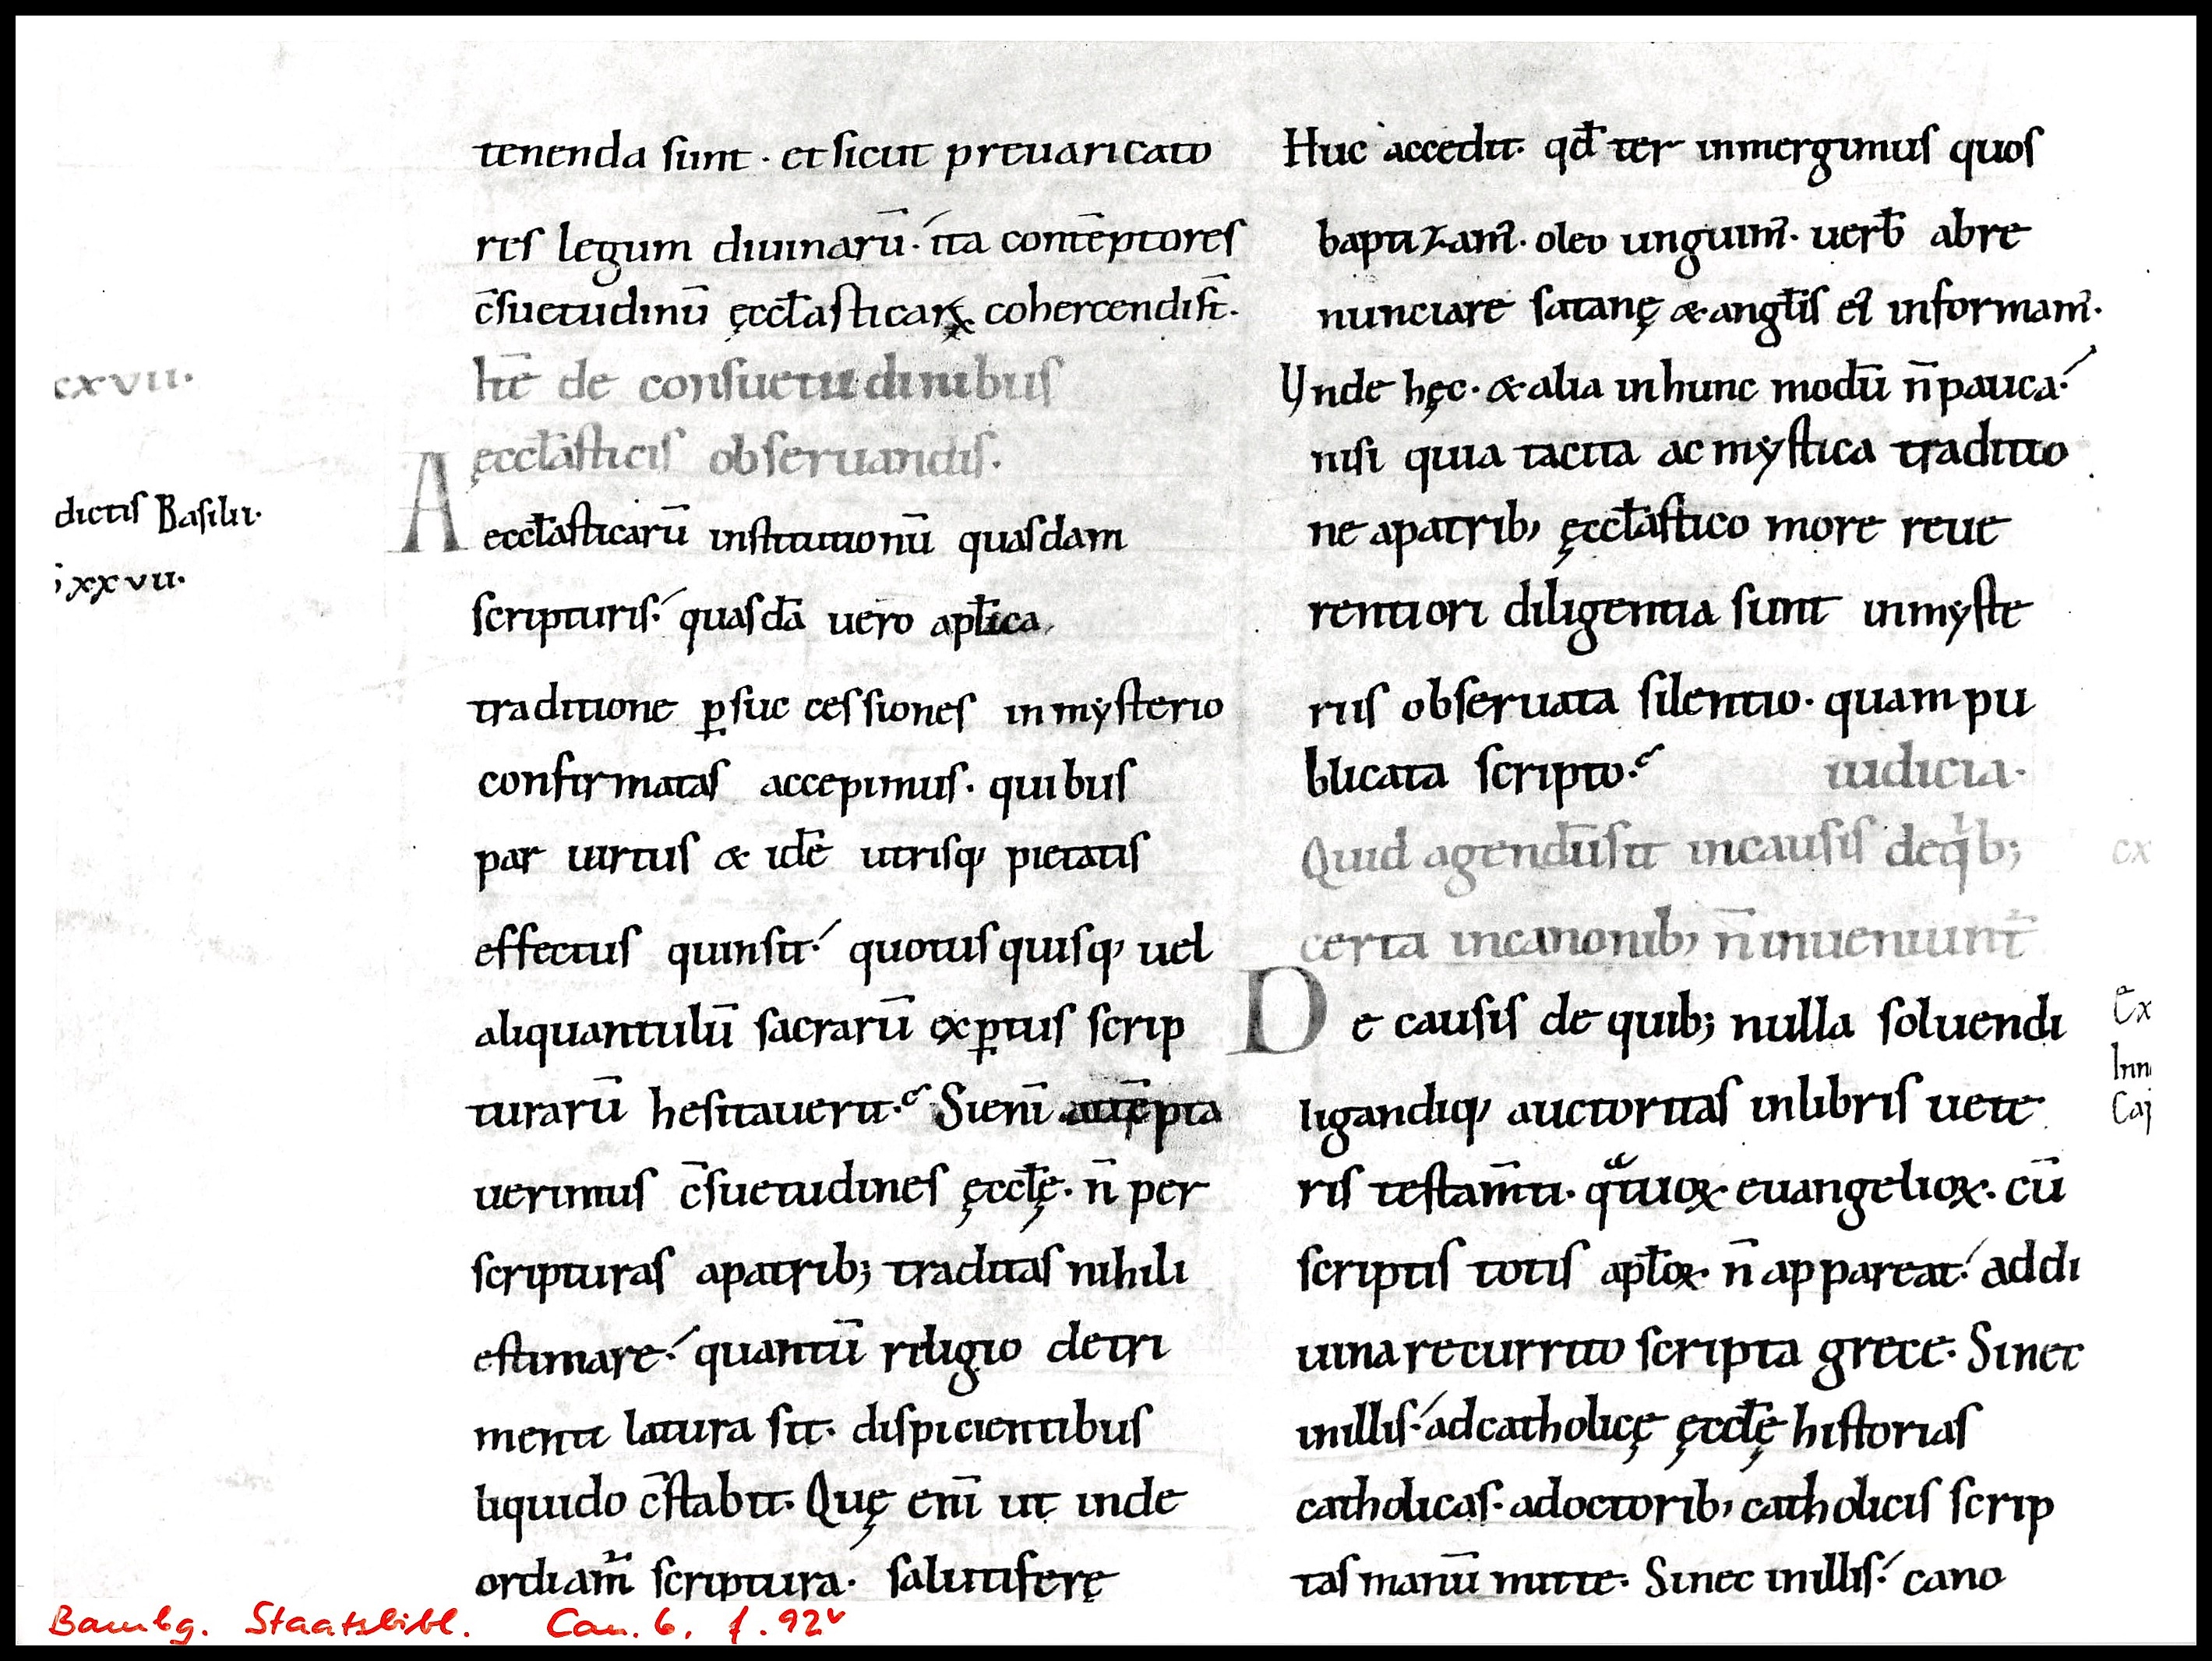 tenenda sunt · et sicut preuaricato
res legum diuinarū · ita contēptores
c̄suetudinū ęccl̄asticarꝝ cohercendi st̄.
cxvii.
Itē de consuetudinibus
ęccl̄asticis obseruandis.
dictis Basilii.
xxvii.
A ecclasticarū institutionū quasdam
scripturis. quasdā uero apl̄ica
traditione ꝑ successiones in mẏsterio
confirmatas accepimus. quibus
par uirtus & idē utrisq; pietatis
effectus quin sit. quotus quisq; uel
aliquantulū sacrarū exꝑtus scrip
turarū hesitauerit. Si enī attēpta
uerimus c̄suetudines ęccl̄ę. n̄ per
scripturas a patrib; traditas nihili
estimare. quantū religio detri
menti latura sit. dispicientibus
liquido c̄stabit. Quę enī ut inde
ordiam̃ scriptura. salutiferę
Huc accedit. qđ ter inmergimus quos
baptizam̃. oleo unguim̃. uerb̄ abre
nunciare satanę & angl̄is ei᷒ informam̃.
Unde hęc. & alia in hunc modū n̄ pauca.
nisi quia tacita ac mẏstica traditio
ne a patrib; ęccl̄astico more reue
rentiori diligentia sunt in mẏste
riis obseruata silentio. quam pu
blicata scripto.
iudicia.
Quid agendū sit in causis de qⁱb;
certa in canonib; n̄ inueniunt᷑
cx
D e causis de quib; nulla soluendi
Ex
ligandiq; auctoritas in libris uete
Inn
Cap
ris testam̄ti. qͣtuoꝝ euangelioꝝ. cū
scriptis totis apl̄oꝝ n̄ appareat. ad di
uina recurrito scripta grece. Si nec
in illis. ad catholicę ęccl̄ę historias
catholicas. a doctorib; catholicis scrip
tas manū mitte. Si nec in illis. cano
Bambg. Staatsbibl. Can. 6, f. 92ᵛ